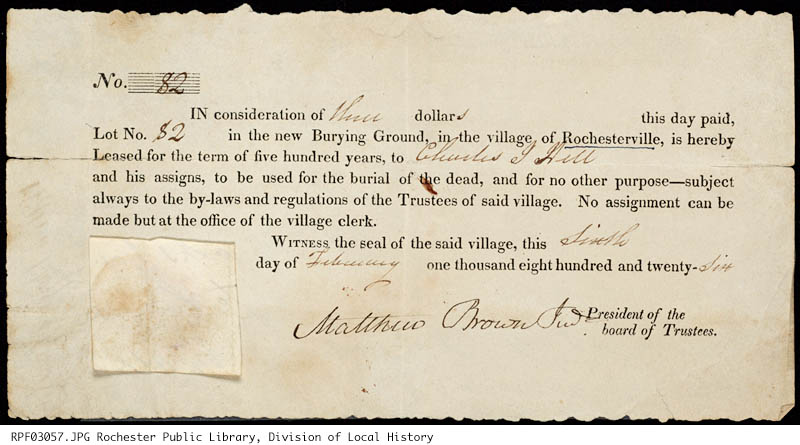 No. 82
IN consideration of three dollars this day paid,
Lot No. 82 in the new Burying Ground, in the village of Rochesterville, is hereby
Leased for the term of five hundred years, to Charles J Hill
and his assigns, to be used for the burial of the dead, and for no other purpose—subject
always to the by-laws and regulations of the Trustees of said village. No assignment can be
made but at the office of the village clerk.
WITNESS the seal of the said village, this Sixth
day of February one thousand eight hundred and twenty-six
Matthew Brown Jun President of the
board of Trustees.
RPF03057.JPG Rochester Public Library, Division of Local History